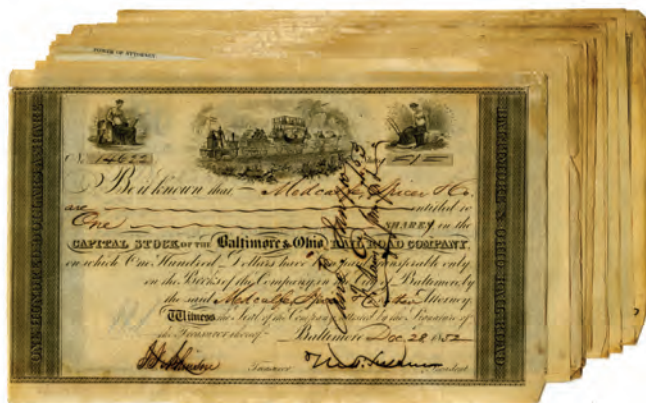 POWER OF ATTORNEY
ONE HUNDRED DOLLARS A SHARE
No. 14622
Be it known that Medcalfe Spicer & Co.
are entitled to
One SHARES in the
CAPITAL STOCK OF THE Baltimore & Ohio RAIL ROAD COMPANY,
on which One Hundred Dollars have paid transferable only
on the Books of the Company, in the City of Baltimore by
the said Medcalfe Spicer Attorney
Witness the Seal of the Company, attested by the Signature of
the Treasurer thereof Baltimore Dec. 28 1852
Treasurer President
BALTIMORE & OHIO RAIL ROAD